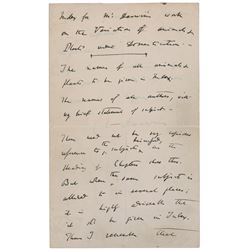 Index for Mr Darwin's work
on the Variation of animals &
Plants under Domestication. —
The names of all animals &
plants to be given in Index.
The names of all authors, with
very brief statement of subject. —
There need not be any copious
reference to the principal subjects, in the
Heading of Chapters does this.
But when the same subject is
allluded to in several places,
it is highly desirable the
it shd be given in Index.
There I remember that